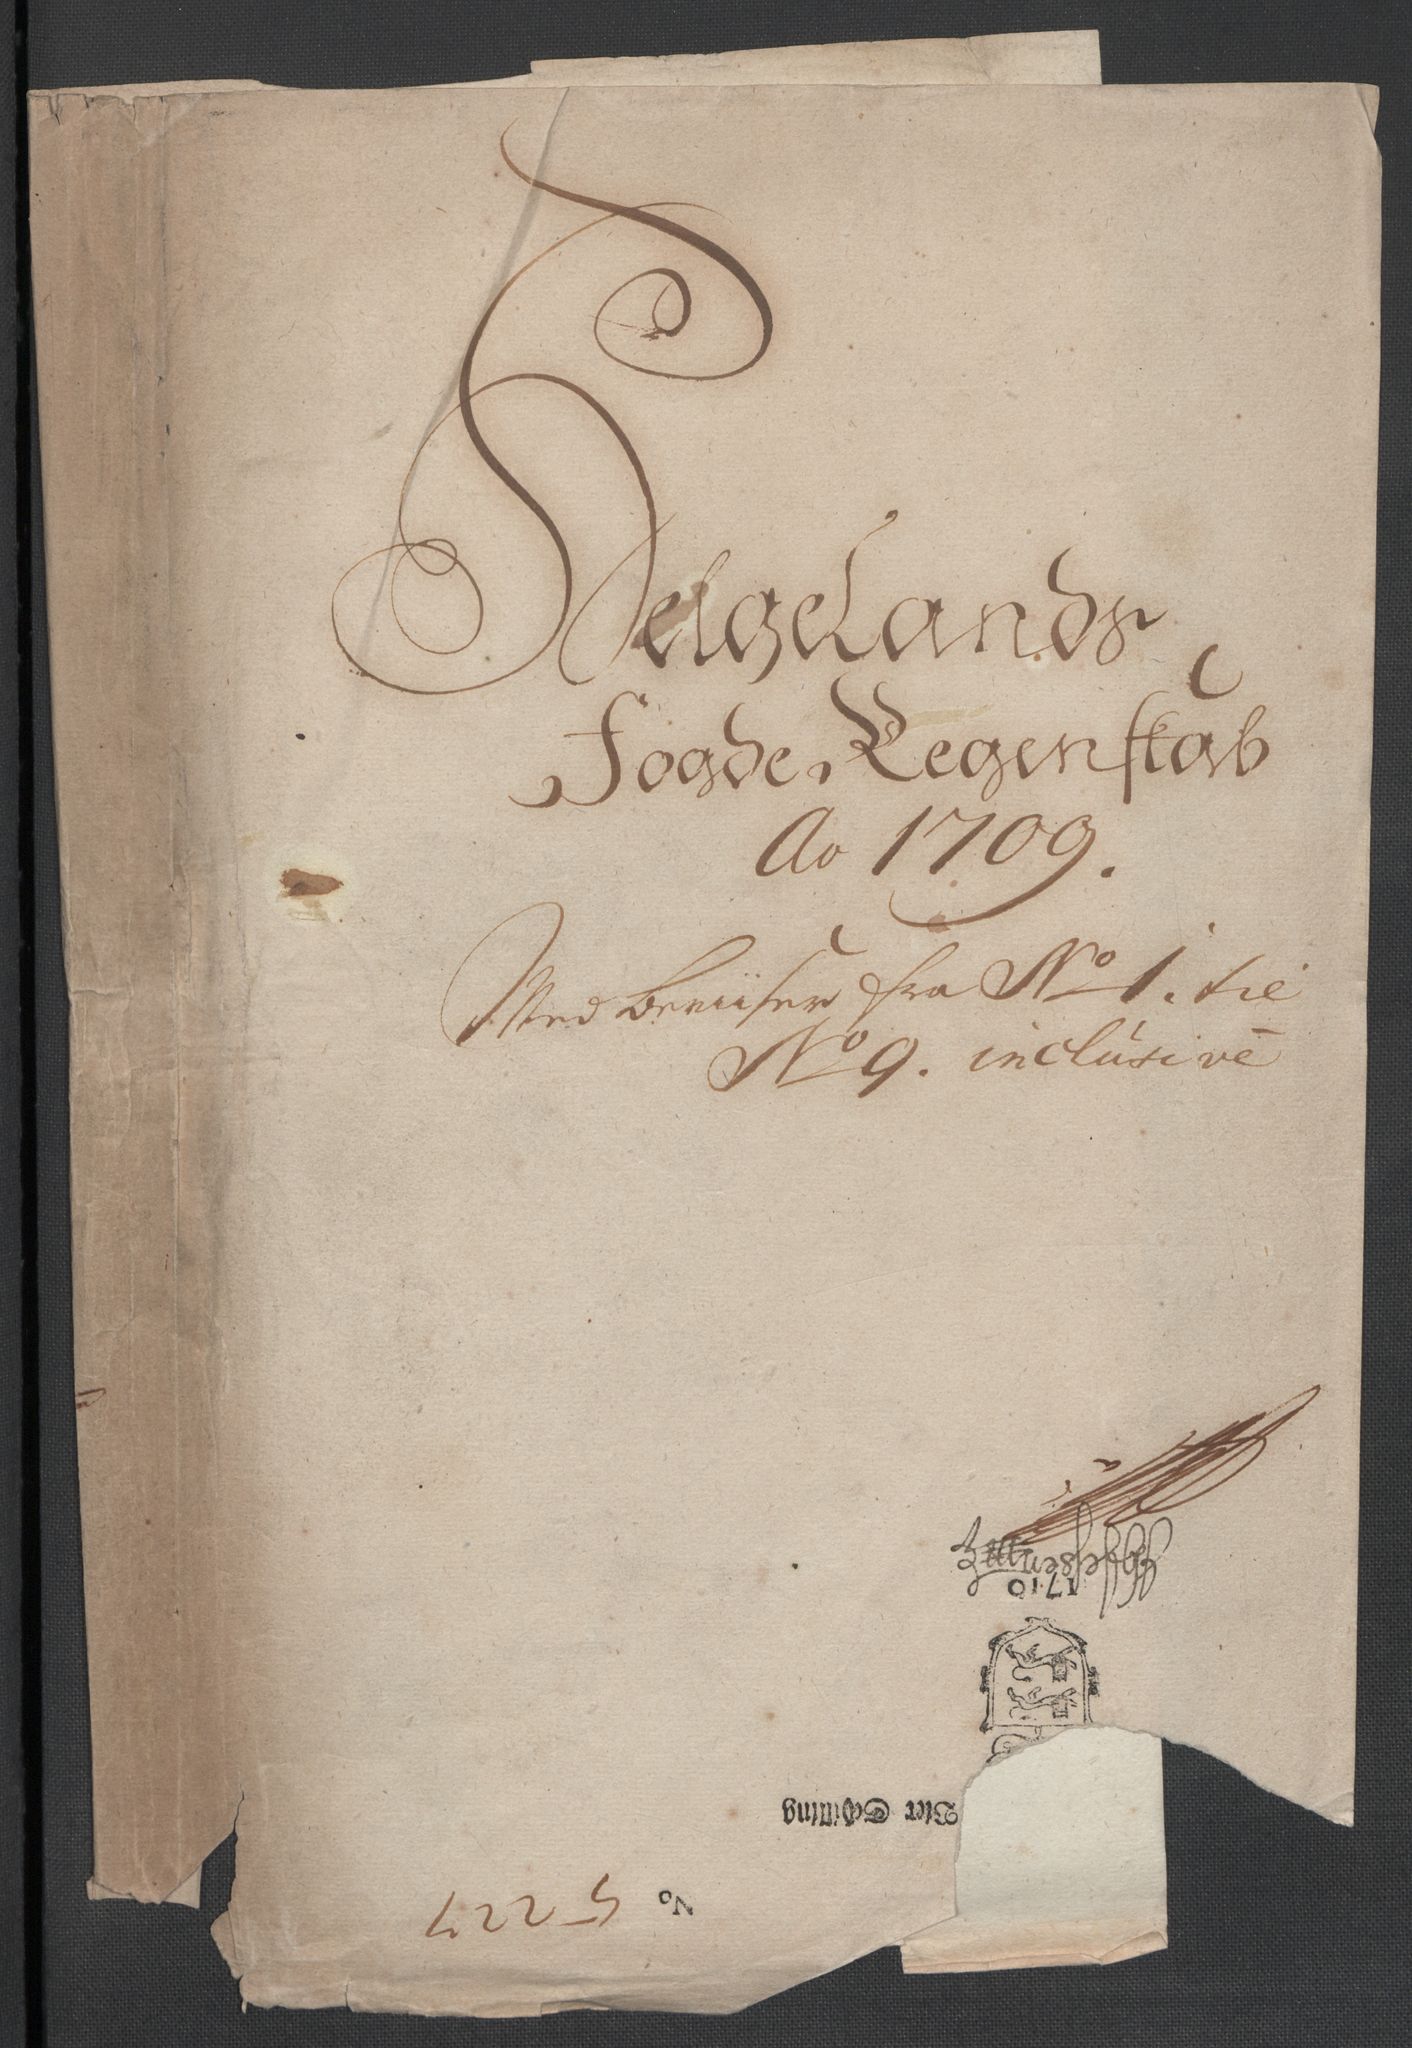 Helgelands
Fogde Regenskab
Ao 1709.
Med beviiser fra No 1. til
No 9. inclusive
1710
Vier Schilling
No 5227